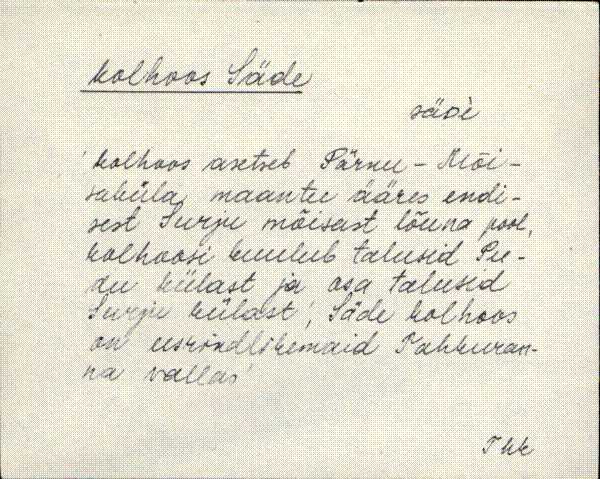 kolhoos Säde
säde
'kolhoos asetseb Pärnu - Mõi-
saküla maantee ääres endi-
sest Surju mõisast lõuna pool,
kolhoosi kuulub talusid Pu-
du külast ja osa talusid
Surju külast', Säde kolhoos
on eesrindlikemaid Tahkuran-
na vallas'
Thk